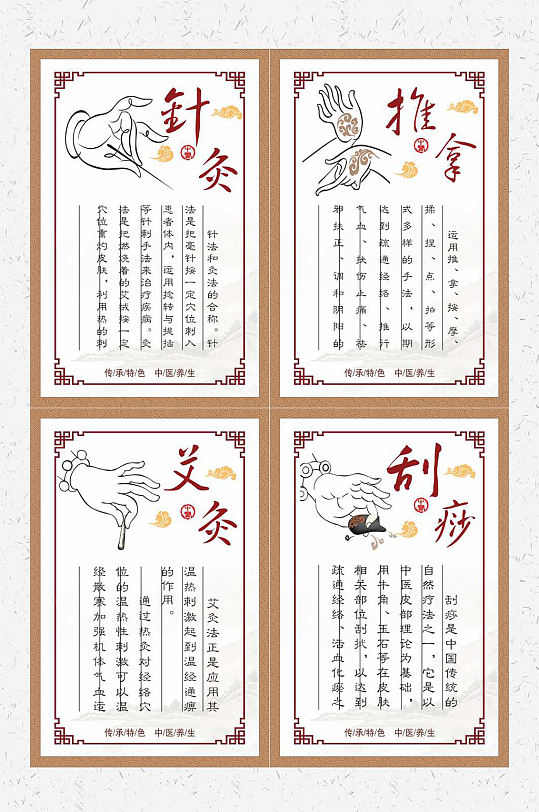 針灸
针法和灸法的合称。针
法是把毫针按一定穴位刺入
患者体内，运用捻转与提插
等针刺手法来治疗疾病。灸
法是把燃烧着的艾绒按一定
穴位熏灼皮肤，利用热的刺
传承特色 中医养生
推拿
运用推、拿、按、摩、
揉、捏、点、拍等形
式多样的手法，以期
达到疏通经络、推行
气血、扶伤止痛、祛
邪扶正、调和阴阳的
传承特色 中医养生
艾灸
艾灸法正是应用其
温热刺激起到温经通痹
的作用。
通过热灸对经络穴
位的温热性刺激可以温
经散寒加强机体气血运
传承特色 中医养生
刮痧
刮痧是中国传统的
自然疗法之一，它是以
中医皮部理论为基础，
用牛角、玉石等在皮肤
相关部位刮拭，以达到
疏通经络、活血化瘀之
传承特色 中医养生